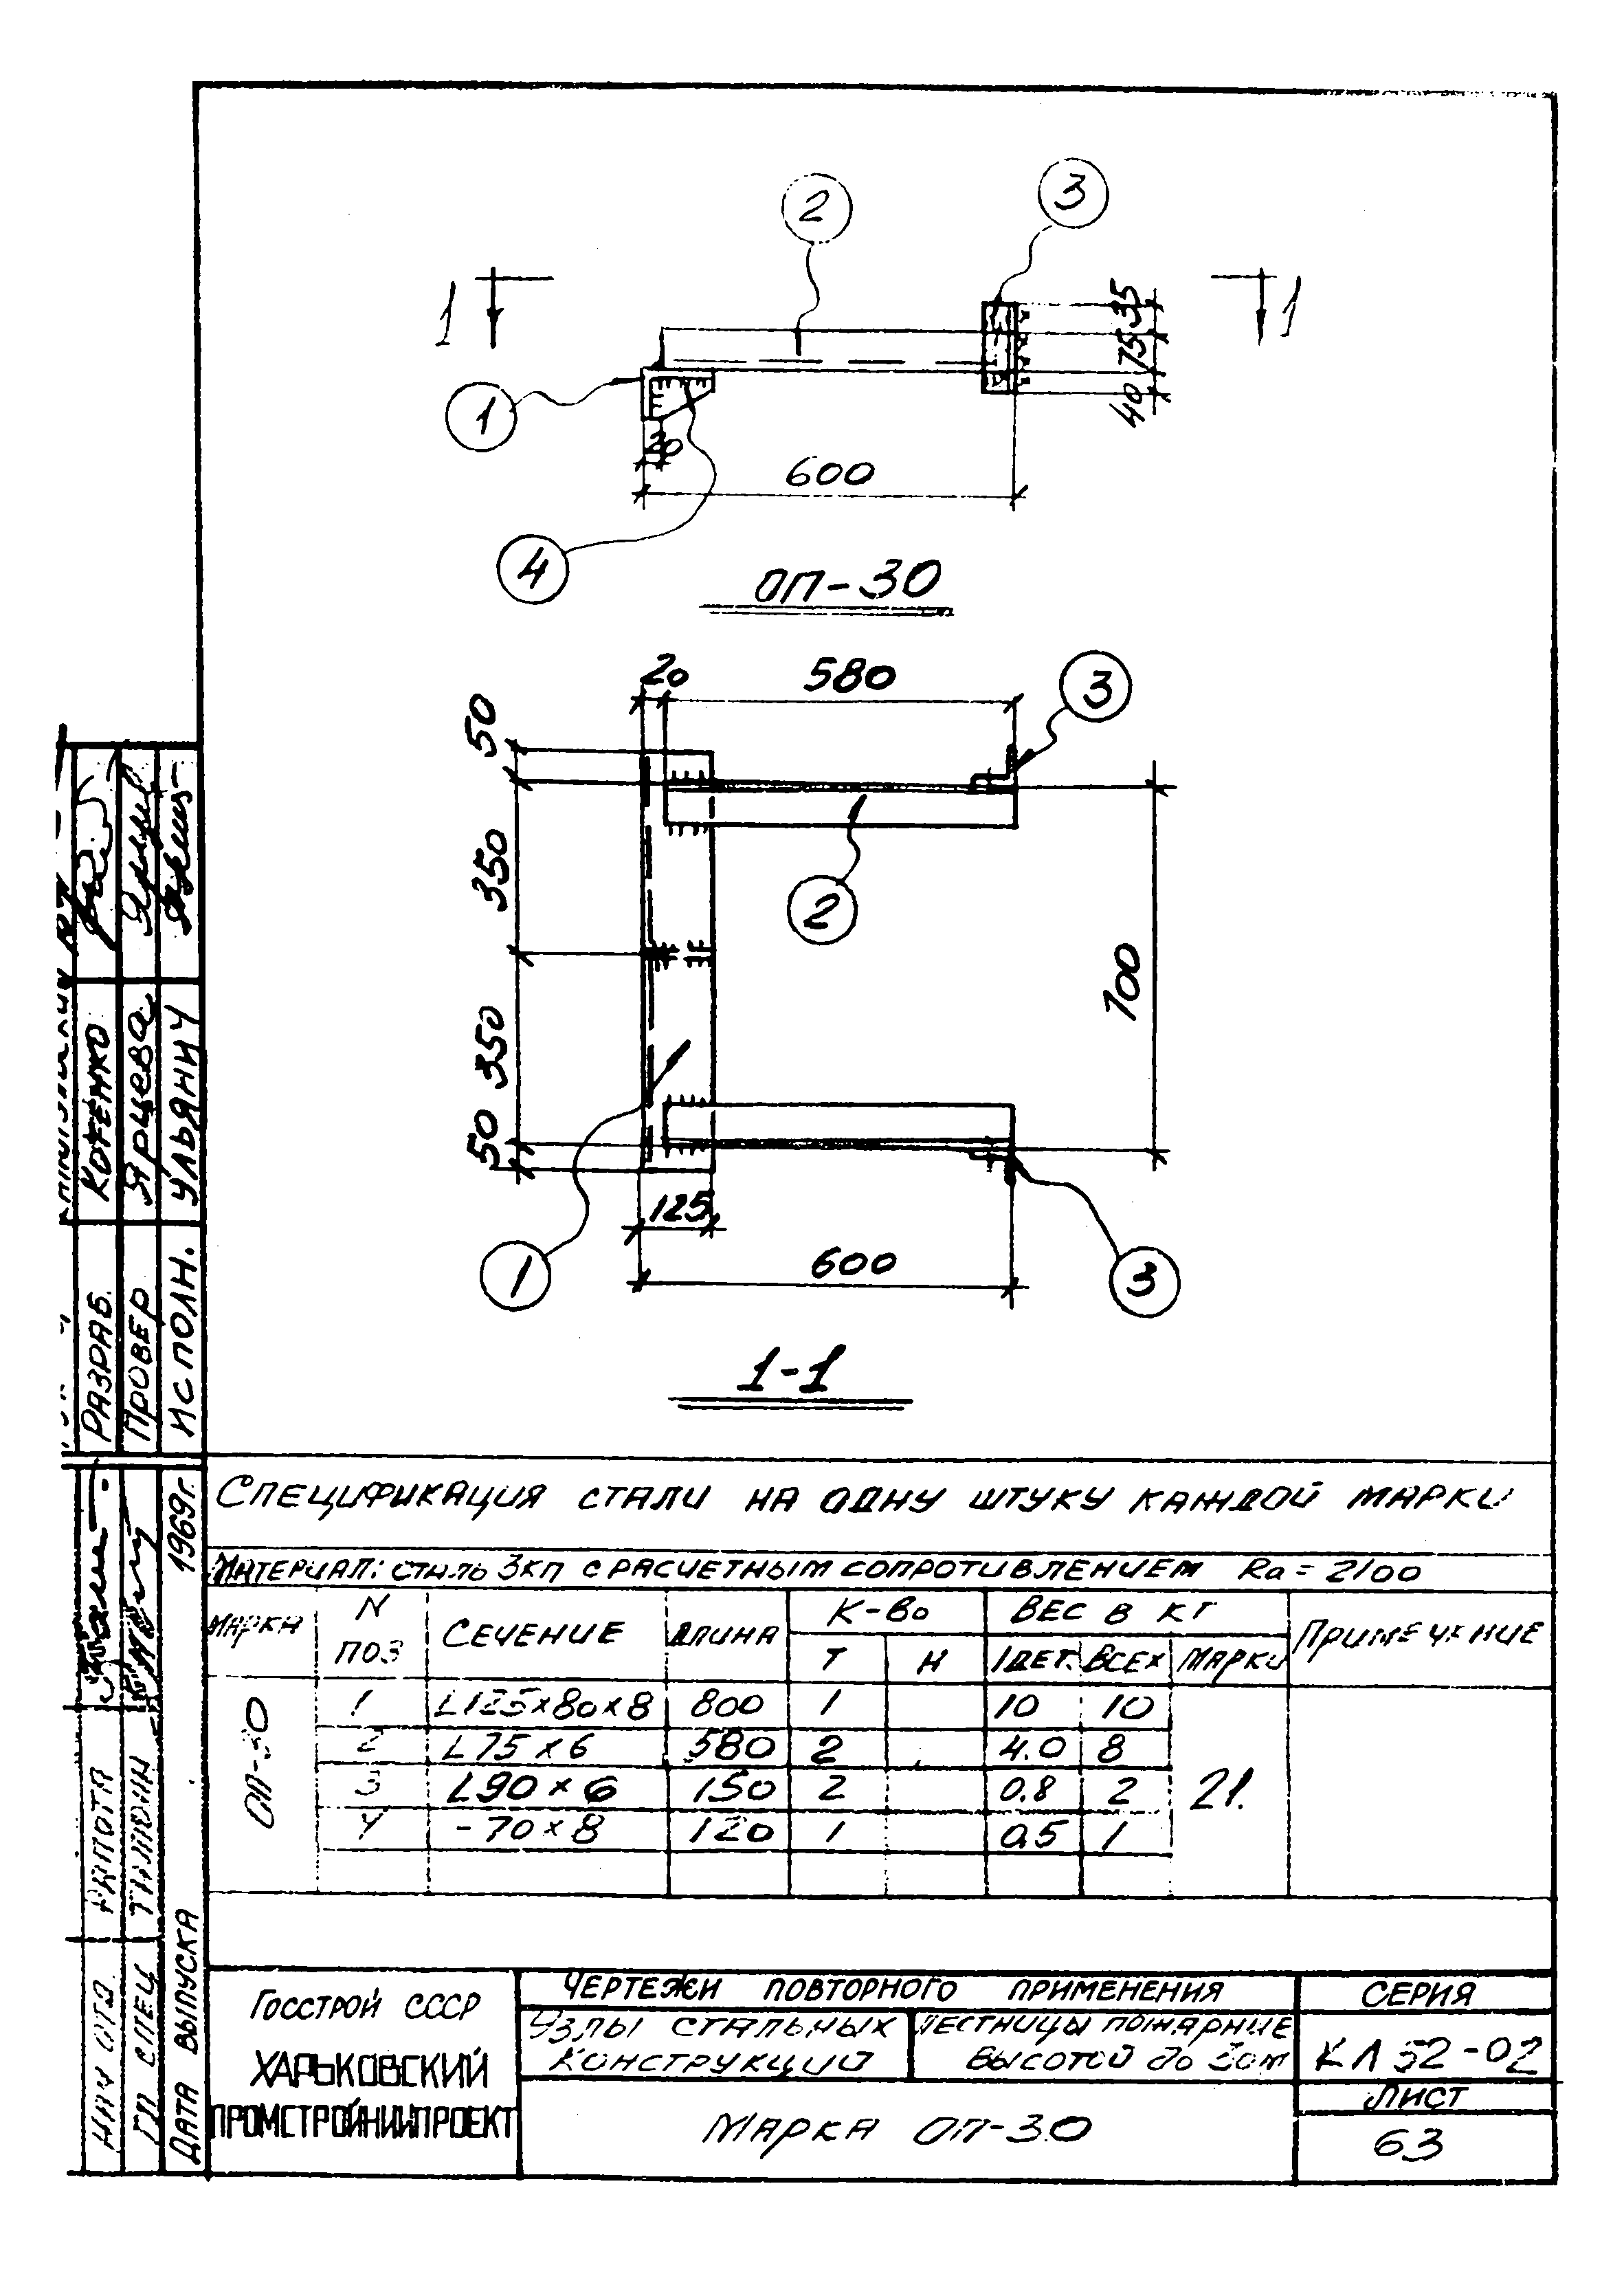 2
3
1
1
35
75
40
1
20
600
4
ОП-30
20
580
3
50
350
2
700
350
50
125
1
600
3
1-1
СПЕЦИФИКАЦИЯ СТАЛИ НА ОДНУ ШТУКУ КАЖДОЙ МАРКИ
МАТЕРИАЛ: СТАЛЬ 3КП С РАСЧЕТНЫМ СОПРОТИВЛЕНИЕМ Ra = 2100
МАРКА N ПОЗ СЕЧЕНИЕ ДЛИНА К-ВО ВЕС В КГ ПРИМЕЧАНИЕ
Т Н 1ДЕТ. ВСЕХ МАРКИ
ОП-30
1 L125×80×8 800 1 10 10
2 L75×6 580 2 4.0 8
3 L90×6 150 2 0.8 2 21.
4 -70×8 120 1 0.5 1
ГОССТРОЙ СССР
ХАРЬКОВСКИЙ
ПРОМСТРОЙНИИПРОЕКТ
ЧЕРТЕЖИ ПОВТОРНОГО ПРИМЕНЕНИЯ
УЗЛЫ СТАЛЬНЫХ
КОНСТРУКЦИЙ
ЛЕСТНИЦЫ ПОЖАРНЫЕ
ВЫСОТОЙ ДО 30М
МАРКА ОП-30
СЕРИЯ
КЛ 52-02
ЛИСТ
63
РАЗРАБ. КОТЕНКО
ПРОВЕР ЯРЦЕВА
ИСПОЛН. УЛЬЯНИЧ
НАЧ ОТД
ГЛ СПЕЦ
ДАТА ВЫПУСКА 1969г.